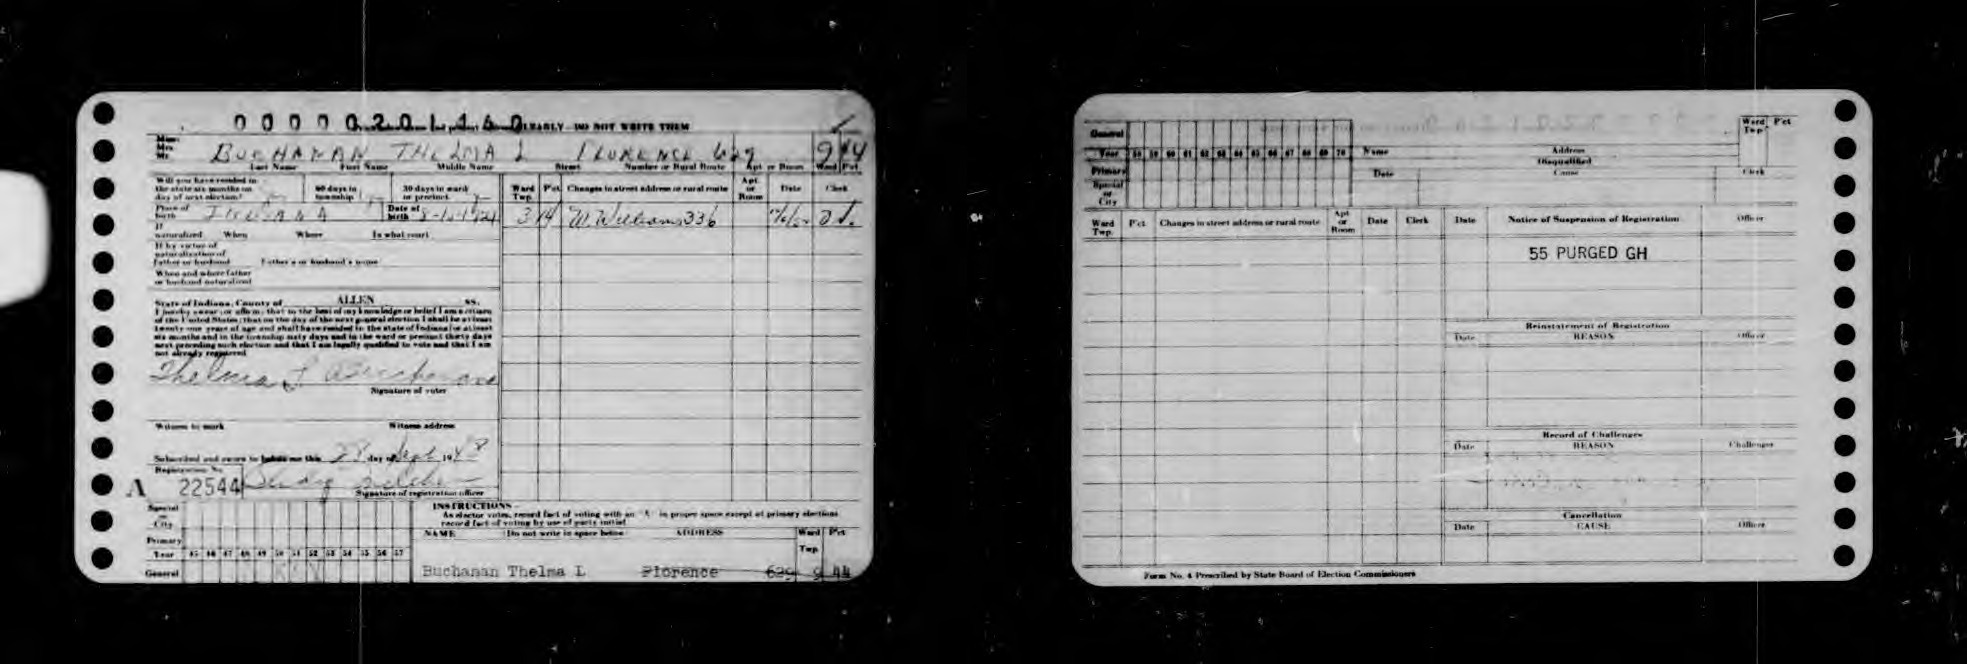 0 0 0 0 0 2 0 1 1 6 0 CLEARLY - DO NOT WRITE THEM
Miss
Mrs.
Mr. BUCHANAN THELMA L FLORENCE 629 9 44
Last Name First Name Middle Name Street Number or Rural Route Apt or Room Ward Pct.
Will you have resided in
the state six months on
day of next election?
60 days in
township
30 days in ward
or precinct
Ward
Twp.
Pct.
Changes in street address or rural route
Apt
or
Room
Date
Clerk
Place of
birth INDIANA
Date of
birth
3 14 W. Williams 336
If
naturalized When Where In what court
If by virtue of
naturalization of
father or husband Father's or husband's name
When and where father
or husband naturalized
State of Indiana, County of ALLEN ss.
I hereby swear (or affirm) that to the best of my knowledge or belief I am a citizen
of the United States; that on the day of the next general election I shall be at least
twenty-one years of age and shall have resided in the state of Indiana for at least
six months and in the township sixty days and in the ward or precinct thirty days
next preceding such election and that I am legally qualified to vote and that I am
not already registered
Thelma L Buchanan
Signature of voter
Witness to mark Witness address
Subscribed and sworn to before me this 28 day of Sept 1948
Registration No.
A 22544
Signature of registration officer
Special
or
City
Primary
Year 45 46 47 48 49 50 51 52 53 54 55 56 57
General
INSTRUCTIONS -
As elector votes, record fact of voting with an "X" in proper space except at primary elections
record fact of voting by use of party initial
NAME (Do not write in space below) ADDRESS Ward Pct
Twp.
Buchanan Thelma L Florence 629 9 44
General
Year 58 59 60 61 62 63 64 65 66 67 68 69 70 Name Address
Disqualified
Ward
Twp.
P'ct
Primary
Date Cause Clerk
Special
or
City
Ward
Twp.
P'ct Changes in street address or rural route
Apt
or
Room
Date Clerk
Date Notice of Suspension of Registration Officer
55 PURGED GH
Reinstatement of Registration
Date REASON Officer
Record of Challenges
Date REASON Challenger
Cancellation
Date CAUSE Officer
Form No. 4 Prescribed by State Board of Election Commissioners